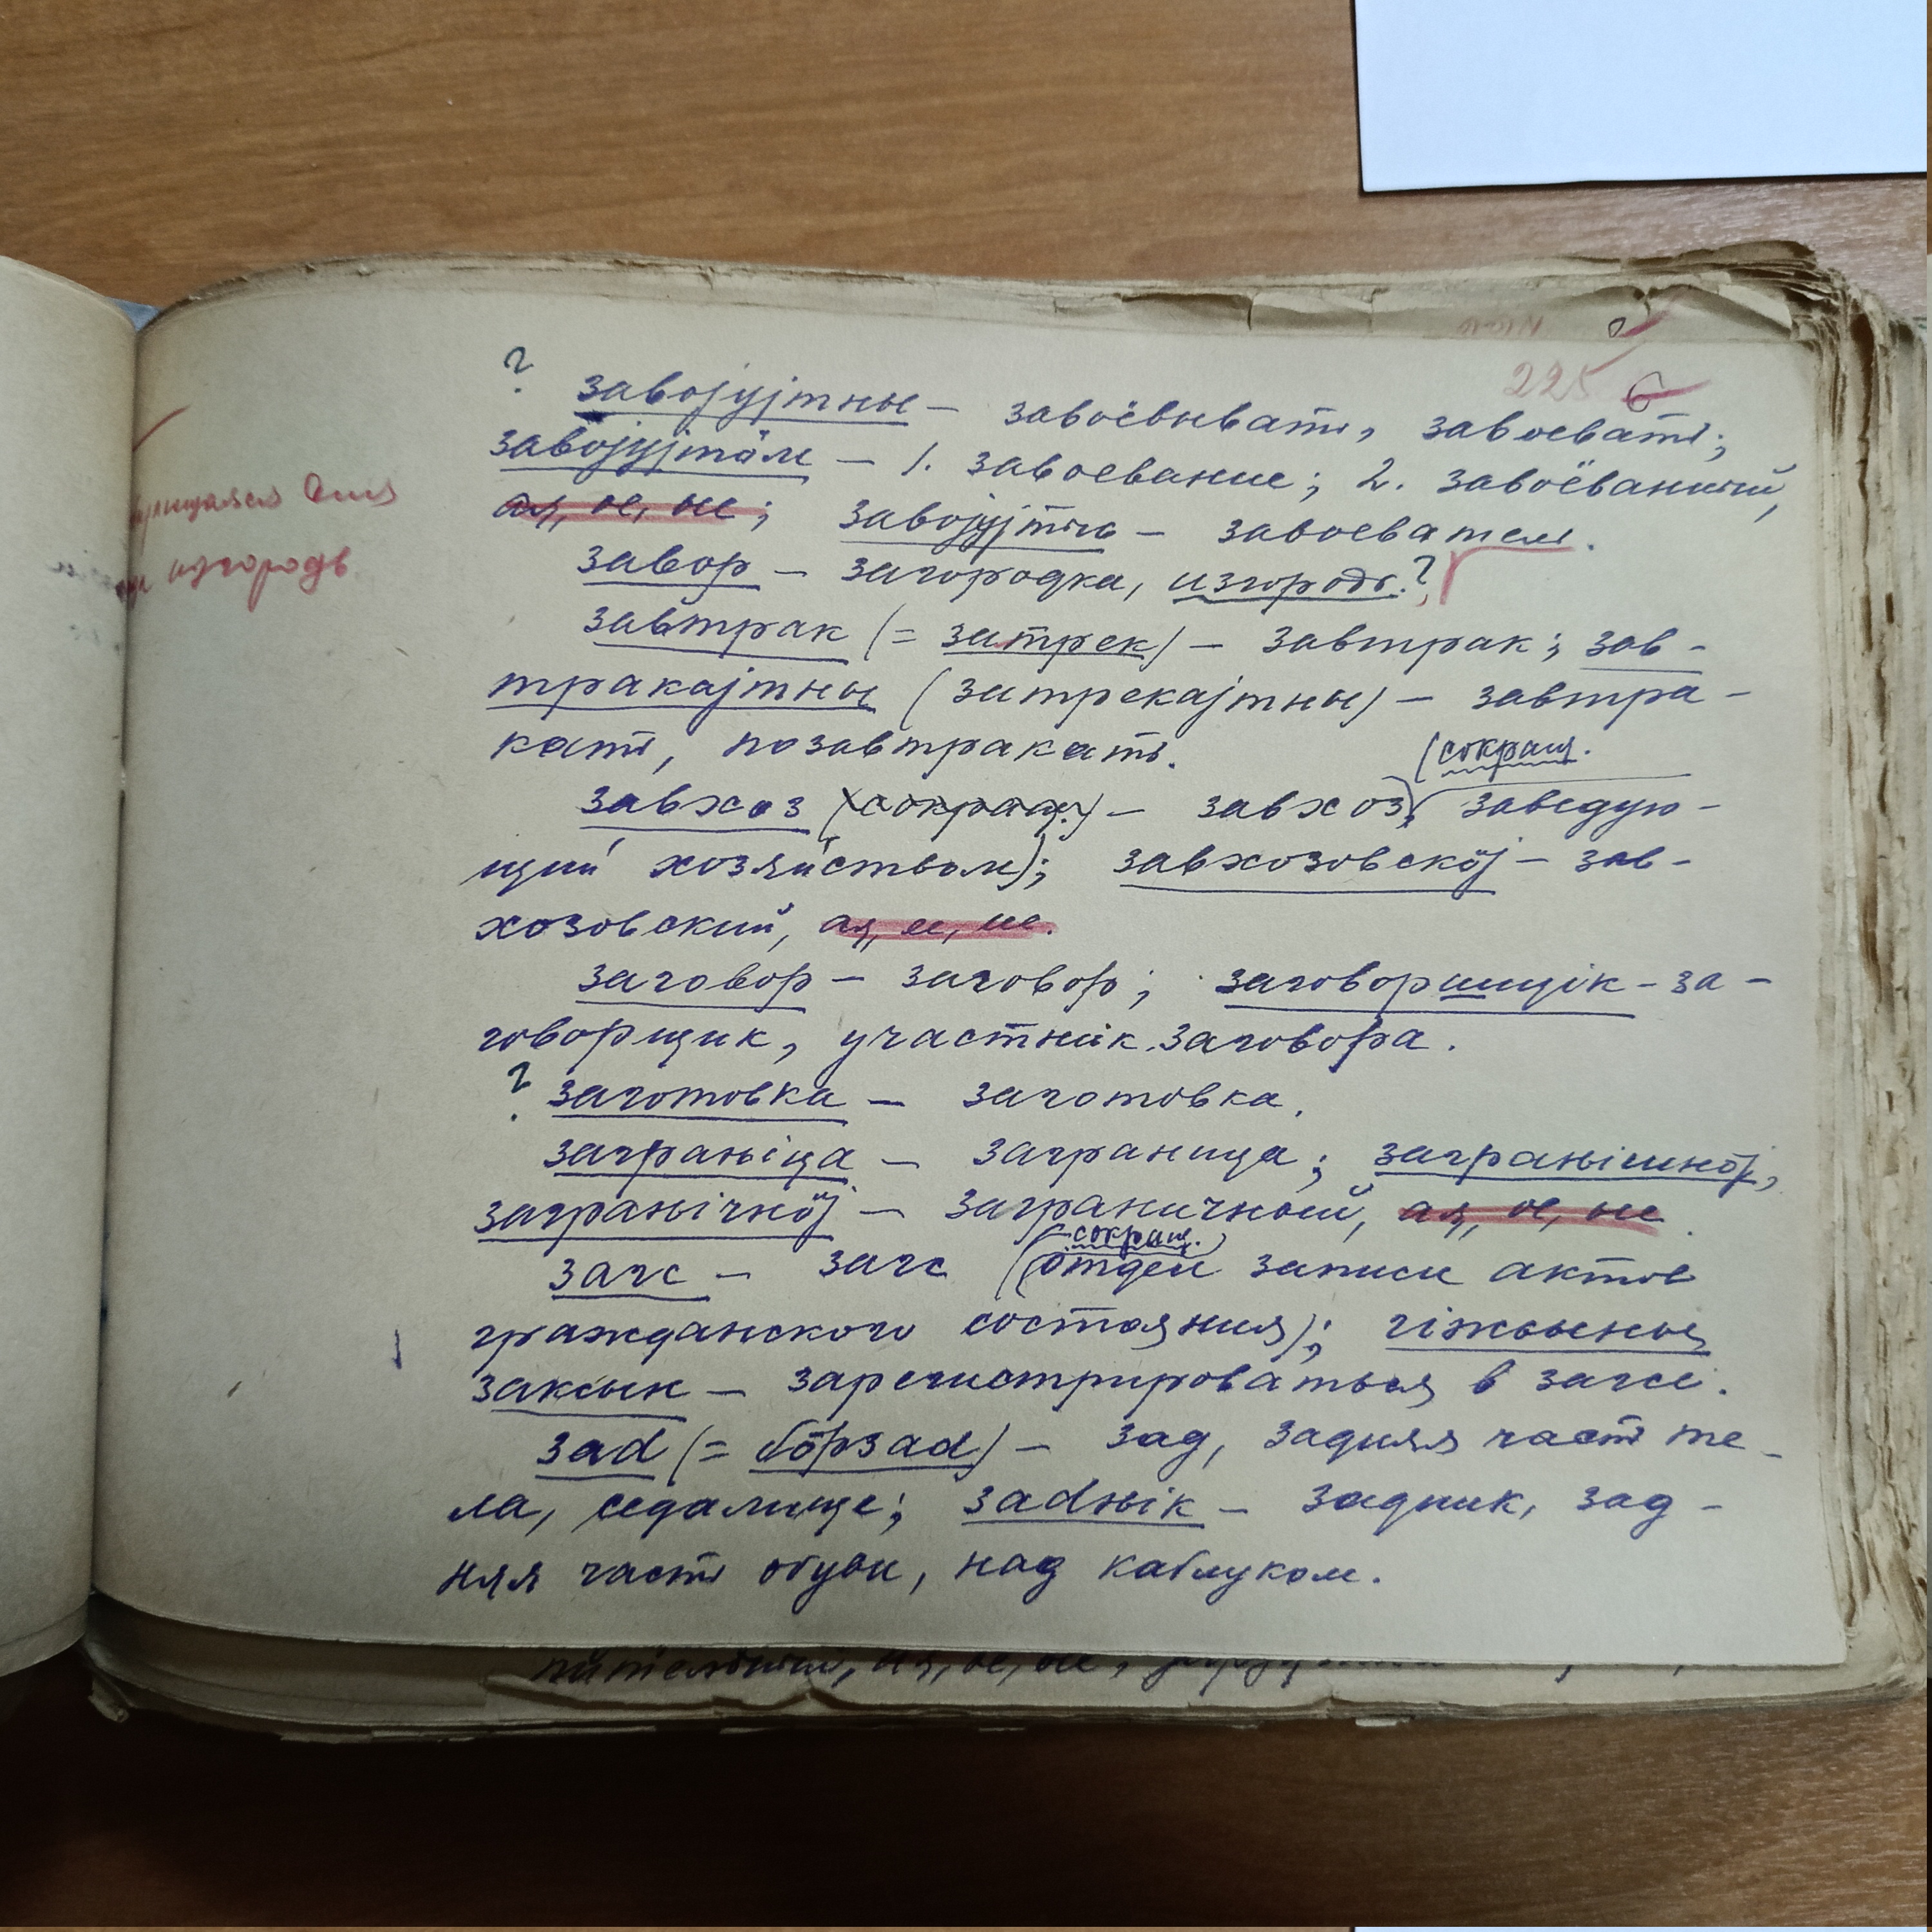 225
? завојујтны – завоёвывать, завоевать;
завојујтӧм – 1. завоевание; 2. завоёванный,
ая, ое, ые; завојујтыс – завоеватель.
завор – загородка, изгородь?
изгородь
завтрак (= затрек) – завтрак; зав-
тракајтны (затрекајтны) – завтра-
кать, позавтракать.
(сокращ.
завхоз (сокращ.) – завхоз, заведую-
щий хозяйством); завхозовскӧј – зав-
хозовский, ая, ое, ие.
заговор – заговор; заговоршщік – за-
говорщик, участник заговора.
? заготовка – заготовка.
заграњіца – заграница; заграњішнӧј,
заграњічнӧј – заграничный, ая, ое, ые
(сокращ.)
загс – загс (отдел записи актов
гражданского состояния); гіжсьыны
заксын – зарегистрироваться в загсе.
заd (= бӧрзаd) – зад, задняя часть те-
ла, седалище; заdњік – задник, зад-
няя часть обуви, над каблуком.